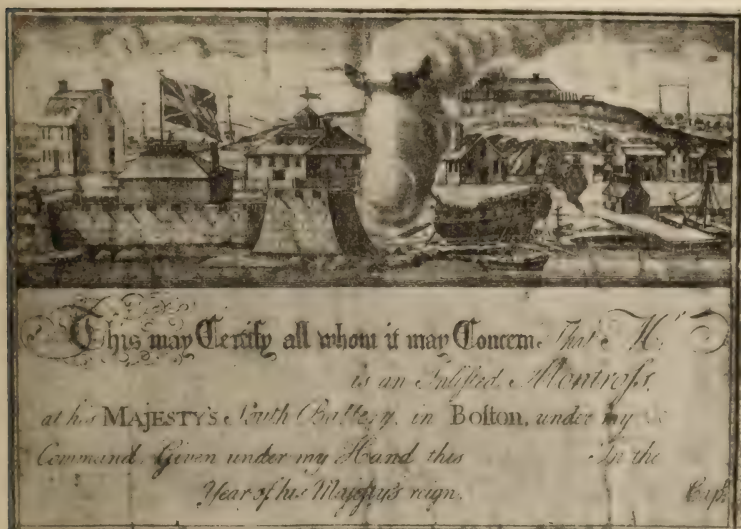 This may Certify all whom it may Concern That Mr.
is an Inlisted Montross,
at his MAJESTY'S South Battery, in Boston, under my
Command. Given under my Hand this In the
Year of his Majesty's reign.
Capt.